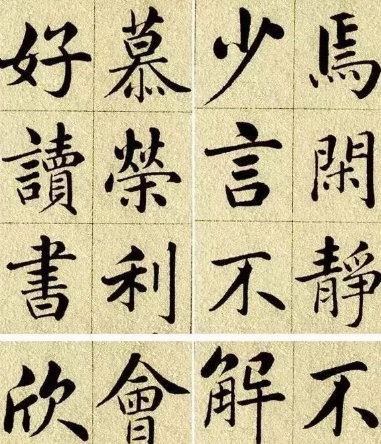 焉閑靜
少言不
慕榮利
好讀書
不
解
會
欣